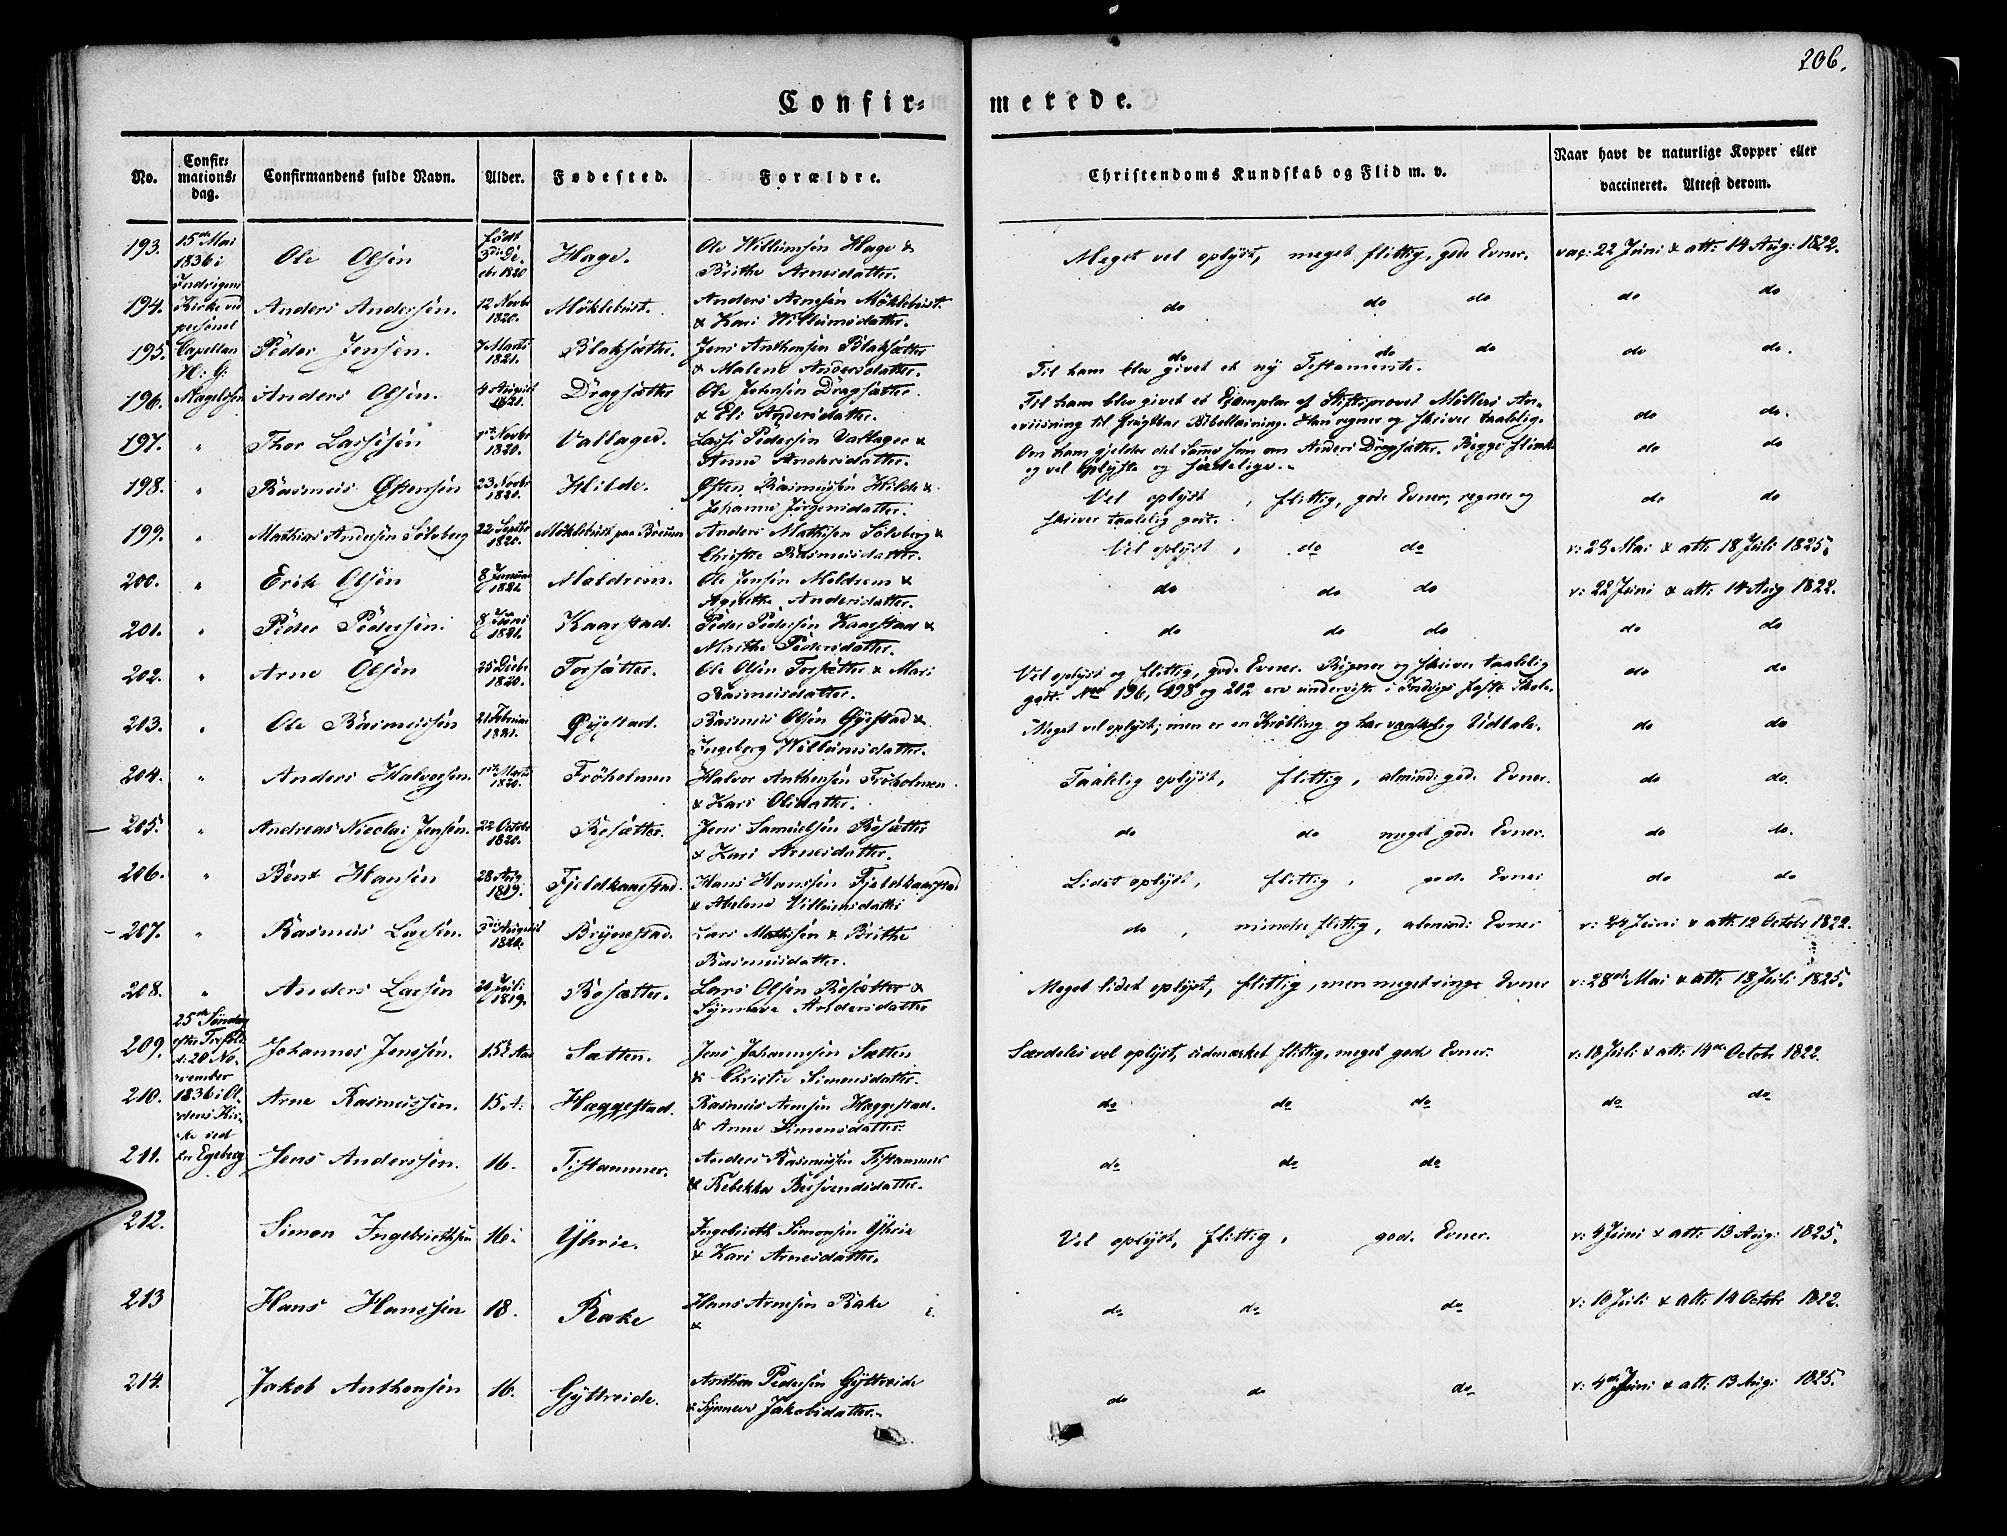 206.
Confir= merede.
No.
Confir=
mations=
dag.
Confirmandens fulde Navn.
Alder.
Fødested.
Forældre.
Christendoms Kundskab og Flid m. v.
Naar havt de naturlige Kopper eller
vaccineret. Attest derom.
193. 15de Mai 1836 i Indvigens Ole Olsen født 3die De- cbr 1820 Hage. Ole Willumsen Hage &
Brithe Arnesdatter.
Meget vel oplyst, meget flittig, gode Evner. vac: 22 Juni & att: 14 Aug: 1822.
194. Kirke ved personel Anders Andersen. 12 Novbr 1820. Möklebust. Anders Arnesen Möklebust
& Kari Willumsdatter.
do do do do do
195. Capellan H: G: Peder Jensen. 7 Marts 1821. Blaksætter. Jens Anthonsen Blaksætter
& Malene Andersdatter.
do do do do do.
Til ham blev givet et ny Testamente.
196. Magelsen Anders Olsen. 4 August 1821. Dragsætter Ole Johnsen Dragsætter
& Eli Andersdatter.
Til ham blev givet et Exemplar af Stiftsprovst Möllers An-
viisning til Frugtbar Bibellæsning. Han regner og skriver taalelig. do do.
197. " Thor Lassesen 1ste Novbr 1820. Vallager. Lasse Pedersen Vallager &
Anne Andersdatter.
Om ham gjelder det samme som om Anders Dragsætter. Begge flinke do do
og vel oplyste og sædelige.
198. " Rasmus Østensen 23 Novbr 1820. Hilde. Østen Rasmussen Hilde &
Johanne Jörgensdatter.
Vel oplyst, flittig, gode Evner, regner og do do
skriver taalelig godt.
199. " Mathias Andersen Solsberg 22 Septbr 1820. Möklebust paa Breum Anders Mathisen Solsberg &
Christie Rasmusdatter.
Vel oplyst, do do v: 29 Mai & att: 18 Juli 1825.
200. " Erik Olsen 8 Januar 1821. Moldrem. Ole Jensen Moldrem &
Agnethe Andersdatter.
do do do v: 22 Juni & att: 14 Aug 1822.
201. " Peder Pedersen. 8 Juni 1821. Kaarstad. Peder Pedersen Kaarstad &
Marthe Pedersdatter.
do do do do do
202. " Arne Olsen 25 Decbr 1820. Torsætter. Ole Olsen Torsætter & Mari
Rasmusdatter.
Vel oplyst og flittig, gode Evner. Regner og skriver taalelig do do
godt. No 196, 198 og 202 ere underviste i Indvigs faste Skole.
203. " Ole Rasmussen 21 Februar 1821. Øyestad. Rasmus Olsen Øyestad &
Ingeborg Willumsdatter.
Meget vel oplyst; men er en Kröbling og har vanskelig Udtale. do do
204. " Anders Halvorsen. 1ste Marts 1820. Fröholmen Halvor Anthonsen Fröholmen
& Kari Olsdatter.
Taalelig oplyst, flittig, almind: gode Evner. do do.
205. " Andreas Nicolai Jensen. 22 Octobr 1820. Rosætter. Jens Samuelsen Rosætter
& Kari Arnesdatter.
do do meget gode Evner. do do.
206. " Bent Hansen 28 Aug 1819. Fjeldkaarstad. Hans Hanssen Fjeldkaarstad
& Abelone Villumsdatter
Lidet oplyst, flittig, gode Evner do do
207. " Rasmus Larsen. 3die August 1820. Brynestad. Lars Mathisen & Brithe
Rasmusdatter.
do, mindre flittig, almind: Evner v: 24 Juni & att: 12 Octobr 1822.
208. " Anders Larsen 20 Juli 1819. Rosætter. Lars Olsen Rosætter &
Synneve Andersdatter
Meget lidet oplyst, flittig, men meget ringe Evner v: 28de Mai & att: 18 Juli 1825.
209. 25de Söndag efter Trefold: d: 20 No- vember Johannes Jenssen. 15½ Aar Sætten. Jens Johannesen Sætten
& Christie Simonsdatter.
Særdeles vel oplyst, udmærket flittig, meget gode Evner. v: 18 Juli & att: 14de Octobr 1822.
210. 1836 i Ol- dens Kir- ke ved Arne Rasmussen. 15 A: Hæggestad. Rasmus Arnesen Hæggestad.
& Anne Simonsdatter.
do do do do do
211. hr Egeberg Jens Anderssen. 16. Tistammer. Anders Rasmussen Tistammer
& Rebekka Bersvendsdatter.
do do do
212. Simon Ingebrigtsen 16. Ytrie. Ingebrigt Simonsen Ytrie
& Kari Arnesdatter.
Vel oplyst, flittig, gode Evner. v: 4 Juni & att: 13 Aug: 1825.
213 Hans Hanssen 18. Rake Hans Arnesen Rake
&
do do do v: 10 Juli & att: 14 Octobr 1822.
214. Jakob Anthonsen 16. Gyttreide. Anthon Pedersen Gyttreide
& Synneve Jakobsdatter.
do do do v: 4de Juni & att: 13 Aug: 1825.